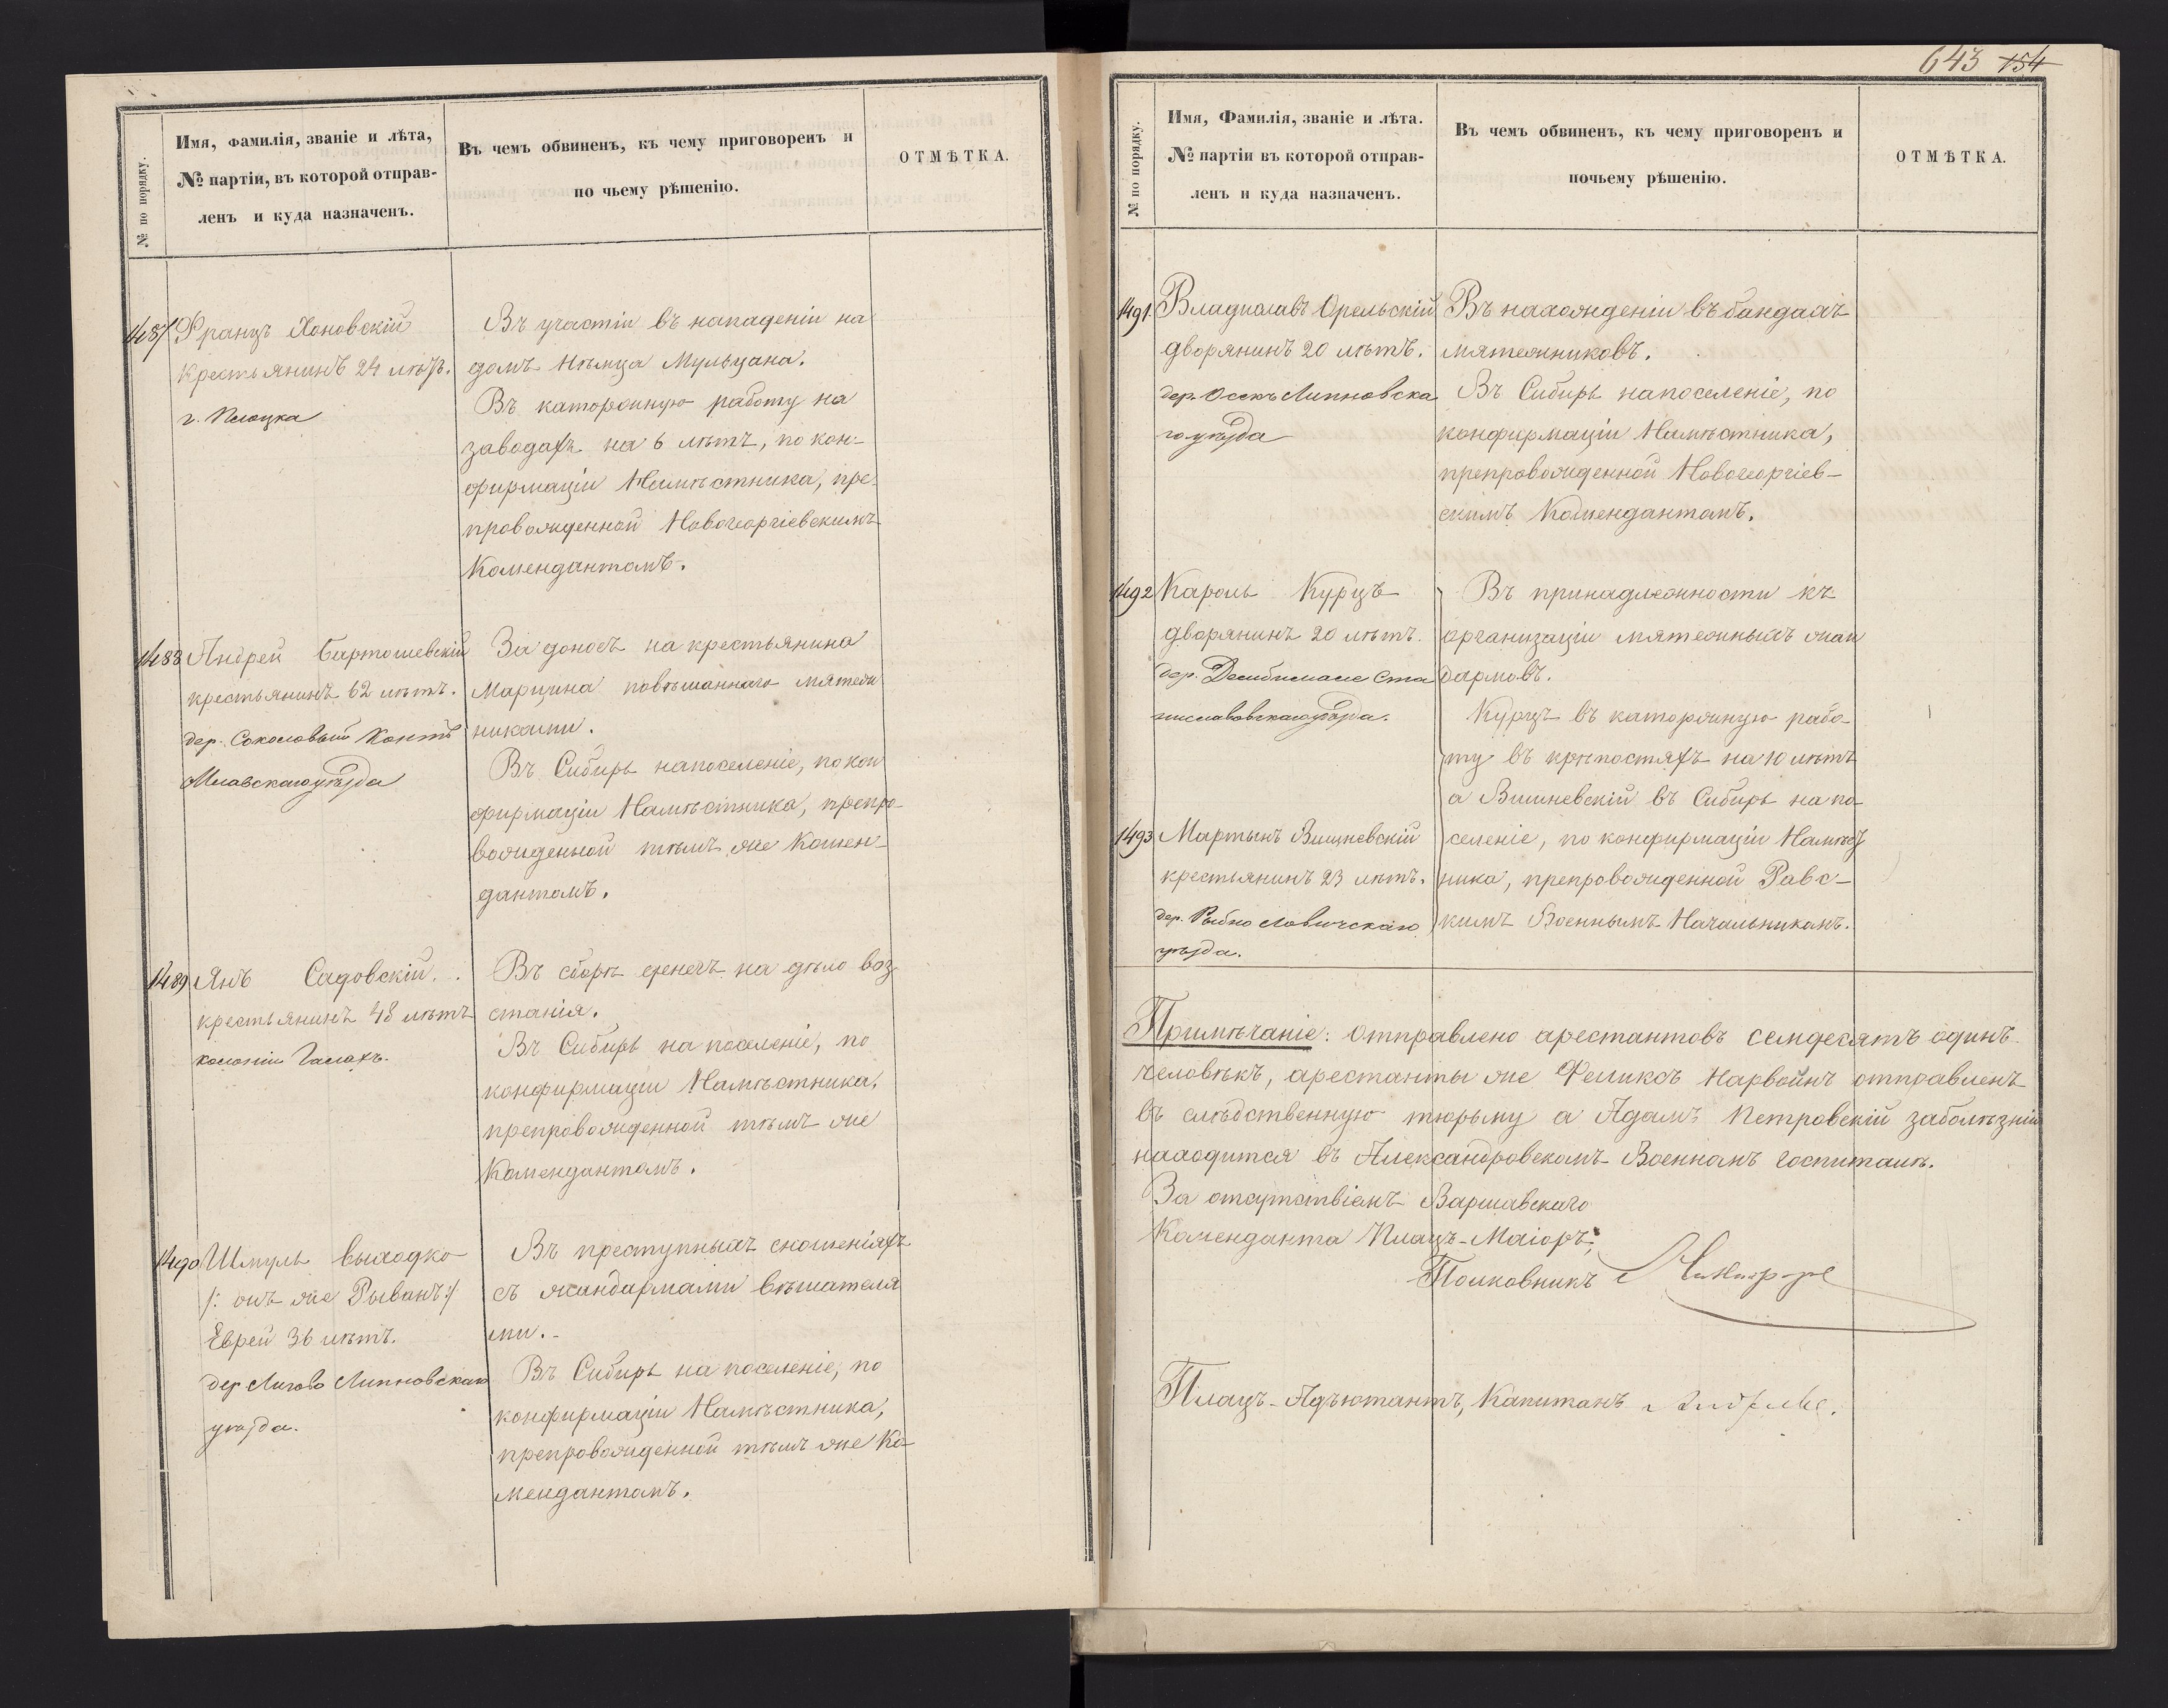 № по порядку.
Имя, фамилія, званіе и лѣта,
№ партіи, въ которой отправ-
ленъ и куда назначенъ.
Въ чемъ обвиненъ, къ чему приговоренъ и
по чьему рѣшенію.
ОТМѢТКА.
1487
Францъ Хоновскій
крестьянинъ 24 лѣтъ.
г. Плоцка
Въ участіи въ нападеніи на
домъ Нѣмца Мульцана.
Въ каторжную работу на
заводахъ на 6 лѣтъ, по кон-
фирмаціи Намѣстника, пре-
провожденной Новогеоргіевскимъ
Комендантомъ.
1488
Андрей Бартошевскій
крестьянинъ 62 лѣтъ.
дер. Соколовый Контъ
Млавскаго уѣзда
За доносъ на крестьянина
Марцина повѣшаннаго мятеж
никами.
Въ Сибирь на поселеніе, по кон
фирмаціи Намѣстника, препро-
вожденной тѣмъ же Комен-
дантомъ.
1489
Янъ Садовскій.
крестьянинъ 48 лѣтъ
колоніи
Въ сборѣ денегъ на дѣло воз
станія.
Въ Сибирь на поселеніе, по
конфирмаціи Намѣстника,
препровожденной тѣмъ же
Комендантомъ.
1490
Шмуль Выходко
/: онъ же Рыванъ :/
Еврей 36 лѣтъ.
дер Липновскаго
уѣзда.
Въ преступныхъ сношеніяхъ
съ жандармами вѣшателя
ми.-
Въ Сибирь на поселеніе, по
конфирмаціи Намѣстника,
препровожденной тѣмъ же Ко-
мендантомъ.
643 154
№ по порядку.
Имя, Фамилія, званіе и лѣта.
№ партіи въ которой отправ-
ленъ и куда назначенъ.
Въ чемъ обвиненъ, къ чему приговоренъ и
почьему рѣшенію.
ОТМѢТКА.
1491.
Владиславъ Орельскій
дворянинъ 20 лѣтъ.
дер. Осекъ Липновска
го уѣзда
Въ нахожденіи въ бандахъ
мятежниковъ.
Въ Сибирь на поселеніе, по
конфирмаціи Намѣстника,
препровожденной Новогеоргіев-
скимъ Комендантомъ.
1492
Кароль Курцъ
дворянинъ 20 лѣтъ.
дер. Ста
ниславовскаго уѣзда.
Въ принадлежности къ
организаціи мятежныхъ жан
дармовъ.
Курцъ въ каторжную рабо-
ту въ крѣпостяхъ на 10 лѣтъ
а Вишневскій въ Сибирь на по-
1493
Мартынъ Вишневскій
крестьянинъ 23 лѣтъ.
дер. Рыбно Ловичскаго
уѣзда.
селеніе, по конфирмаціи Намѣст
ника, препровожденной Равс-
кимъ Военнымъ Начальникомъ.
Примѣчаніе: Отправлено арестантовъ семдесятъ одинъ
человѣкъ, арестанты же Феликсъ Нарвойнъ отправленъ
въ слѣдственную тюрьму а Адамъ Петровскій заболѣзнію
находится въ Александровскомъ Военномъ госпиталѣ.
За отсутствіемъ Варшавскаго
Коменданта Плацъ-Маіоръ,
Полковникъ
Плацъ-Адъютантъ, Капитанъ